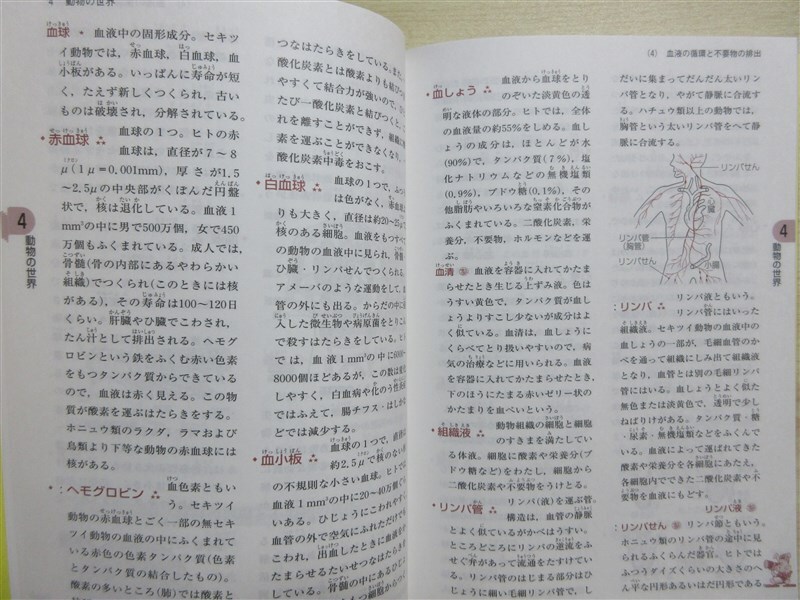 4 動物の世界
血球 ・ 血液中の固形成分。セキツ
イ動物では,赤血球,白血球,血
小板がある。いっぱんに寿命が短
く,たえず新しくつくられ,古い
ものは破壊され,分解されている。
・赤血球 ∴ 血球の1つ。ヒトの赤
血球は,直径が7〜8
μ(1μ=0.001mm),厚さが1.5
〜2.5μの中央部がくぼんだ円盤
状で,核は退化している。血液1
mm³の中に男で500万個,女で450
万個もふくまれている。成人では,
骨髄(骨の内部にあるやわらかい
組織)でつくられ(このときには核
がある),その寿命は100〜120日
くらい。肝臓やひ臓でこわされ,
たん汁として排出される。ヘモグ
ロビンという鉄をふくむ赤い色素
をもつタンパク質からできている
ので,血液は赤く見える。この物
質が酸素を運ぶはたらきをする。
ホニュウ類のラクダ,ラマおよび
鳥類より下等な動物の赤血球には
核がある。
・:ヘモグロビン ∴ 血色素ともい
う。セキツイ
動物の赤血球とごく一部の無セキ
ツイ動物の血液の中にふくまれて
いる赤色の色素タンパク質(色素
とタンパク質の結合したもの)。
酸素の多いところ(肺)では酸素と
つなはたらきをしている。また,
酸化炭素とは酸素よりも結びつ
やすくて結合力が強いので,
たび一酸化炭素と結びつくと,
れを離すことができず,組織に
素を運ぶことができなくなり,
酸化炭素中毒をおこす。
・白血球 ∴ 血球の1つ。ふつ
は色がなく,
りも大きく,直径は約20〜25μ
核のある細胞。血液をもつすべ
の動物の血液中に見られ,骨髄
ひ臓・リンパせんでつくられる。
アメーバのような運動をして,血
管の外にも出る。からだの中に
入した微生物や病原菌をとりこ
で殺すはたらきをしている。ヒト
では,血液1mm³の中に
8000個ほどあるが,この数は変化
しやすく,白血病や化のう性炎
ではふえて,腸チフス・はしか
どでは減少する。
・血小板 ∴ 血球の1つで,直径
約2.5μで核のない
の不規則な小さい血球。ヒトで
血液1mm³の中に20〜40万個く
いある。ひじょうにこわれやす
血管の外で空気にふれただけでも
こわれ,出血したときに血液を
たまらせるたいせつなはたらき
する。骨髄の中にあるひじょ
4
動物の世界
(4) 血液の循環と不要物の排出
・血しょう ∴ 血液から血球をとり
のぞいた淡黄色の透
明な液体の部分。ヒトでは,全体
の血液量の約55%をしめる。血し
ょうの成分は,ほとんどが水
(90%)で,タンパク質(7%),塩
化ナトリウムなどの無機塩類
(0.9%),ブドウ糖(0.1%),その
他脂肪やいろいろな窒素化合物が
ふくまれている。二酸化炭素,栄
養分,不要物,ホルモンなどを運
ぶ。
血清 血液を容器に入れてかたま
らせたとき生じる上ずみ液。色は
うすい黄色で,タンパク質が血し
ょうよりすこし少ないが成分はよ
く似ている。血清は,血しょうに
くらべてとり扱いやすいので,病
気の治療などに用いられる。血液
を容器に入れてかたまらせたとき,
下のほうにたまる赤いゼリー状の
かたまりを血ぺいという。
・組織液 ∴ 動物組織の細胞と細胞
のすきまを満たしてい
る体液。細胞に酸素や栄養分(ブ
ドウ糖など)をわたし,細胞から
二酸化炭素や不要物をうけとる。
・リンパ管 ∴ リンパ(液)を運ぶ管。
構造は,血管の静脈
とよく似ているがかべはうすい。
ところどころにリンパの逆流をふ
せぐ弁があって流通をたすけてい
る。リンパ管のはじまる部分はひ
じょうに細い毛細リンパ管で,し
だいに集まってだんだん太いリン
パ管となり,やがて静脈に合流する。
ハチュウ類以上の動物では,
胸管という太いリンパ管をへて静
脈に合流する。
リンパせん
心臓
リンパ管
(胸管)
リンパせん
小腸
:リンパ ∴ リンパ液ともいう。
リンパ管にはいった
組織液。セキツイ動物の血液中の
血しょうの一部が,毛細血管のか
べを通って組織にしみ出て組織液
となり,血管とは別の毛細リンパ
管にはいる。血しょうとよく似た
無色または淡黄色で,透明で少し
ねばりけがある。タンパク質・糖
・尿素・無機塩類などをふくんで
いる。血液によって運ばれてきた
酸素や栄養分を各細胞にあたえ,
各細胞内でできた二酸化炭素や不
要物を血液にもどす。
リンパ液
リンパせん リンパ節ともいう。
ホニュウ類のリンパ管の途中に見
られるふくらんだ器官。ヒトでは
ふつうダイズくらいの大きさのへ
ん平な円形あるいはだ円形である
4
動物の世界